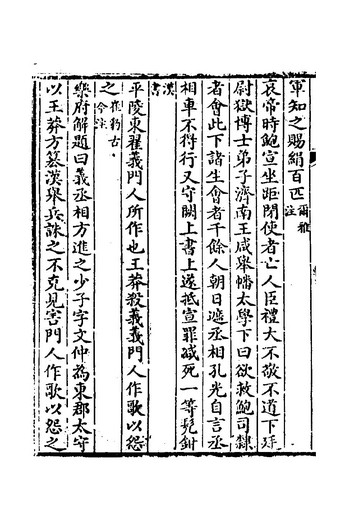 軍知之賜絹百匹爾雅注
哀帝時鮑宣坐距閉使者亡人臣禮大不敬不道下廷
尉獄博士弟子濟南王咸舉幡太學下曰欲救鮑司隸
者會此下諸生會者千餘人朝日遮丞相孔光自言丞
相車不得行又守闕上書上遂抵宣罪減死一等髡鉗
漢書
平陵東翟義門人所作也王莽殺義義門人作歌以怨
之崔豹古今注
樂府解題曰義丞相方進之少子字文仲為東郡太守
以王莽方簒漢舉兵誅之不克見害門人作歌以怨之